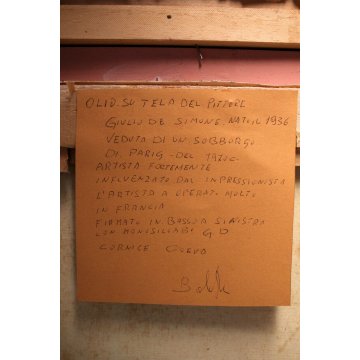 OLIO SU TELA DEL PITTORE
GIULIO DE SIMONE NATO IL 1936
VEDUTA DI UN SOBBORGO
DI PARIG - DEL
ARTISTA FORTEMENTE
INFLUENZATO DAL IMPRESSIONISTA
L'ARTISTA A OPERATO MOLTO
IN FRANCIA
FIRMATO IN BASSO A SINISTRA
CON MONOSILLABI G D
CORNICE COEVA